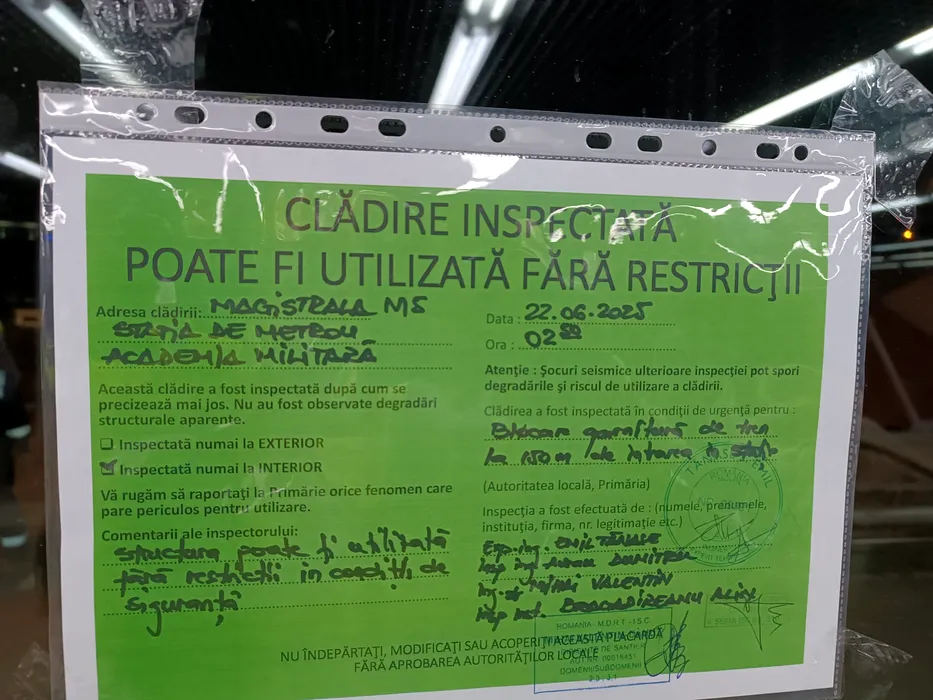 CLĂDIRE INSPECTATĂ
POATE FI UTILIZATĂ FĂRĂ RESTRICȚII
Adresa clădirii: MAGISTRALA M5
STAȚIA DE METROU
ACADEMIA MILITARĂ
Această clădire a fost inspectată după cum se
precizează mai jos. Nu au fost observate degradări
structurale aparente.
Inspectată numai la EXTERIOR
Inspectată numai la INTERIOR
Vă rugăm să raportați la Primărie orice fenomen care
pare periculos pentru utilizare.
Comentarii ale inspectorului:
Structura poate fi utilizată
fără restricții in condiții de
siguranță
Data : 22.06.2025
Ora : 02
Atenție : Șocuri seismice ulterioare inspecției pot spori
degradările și riscul de utilizare a clădirii.
Clădirea a fost inspectată în condiții de urgență pentru :
Blocare garnitură de tren
la 150m de intrarea in stație
(Autoritatea locală, Primăria)
Inspecția a fost efectuată de : (numele, prenumele,
instituția, firma, nr. legitimație etc.)
Exp. ing. EMIL
ing.
VALENTIN
BRAGADIREANU ALIN
ROMANIA- M.D.R.T -I.S.C.
NU ÎNDEPĂRTAȚI, MODIFICAȚI SAU ACOPERIȚI ACEASTĂ PLACARDĂ
FĂRĂ APROBAREA AUTORITĂȚILOR LOCALE